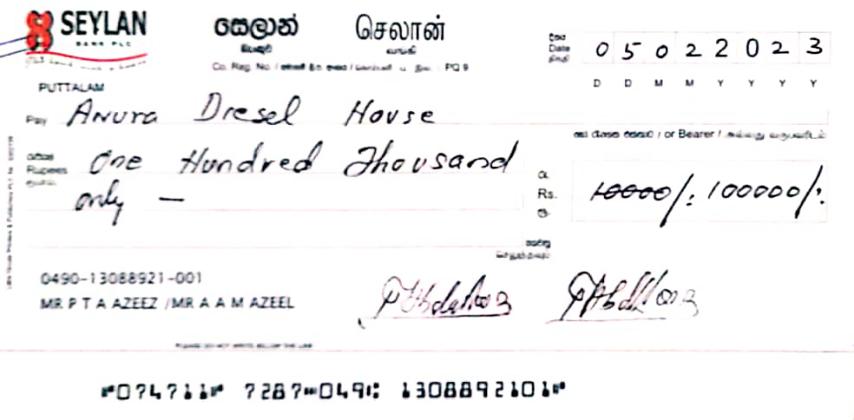 SEYLAN
BANK PLC
සෙලාන්
බැංකුව
செலான்
வங்கி
Co. Reg. No. / PQ 9
Date
0 5 0 2 2 0 2 3
D D M M Y Y Y Y
PUTTALAM
Pay Anura Diesel House
or Bearer /
Rupees One Hundred Thousand
only —
Rs. 10000/: 100000/:
0490-13088921-001
MR P T A AZEEZ /MR A A M AZEEL
PLEASE DO NOT WRITE BELOW THIS LINE
⑈074711⑈ 7287⑉049⑆ 1308892101⑈